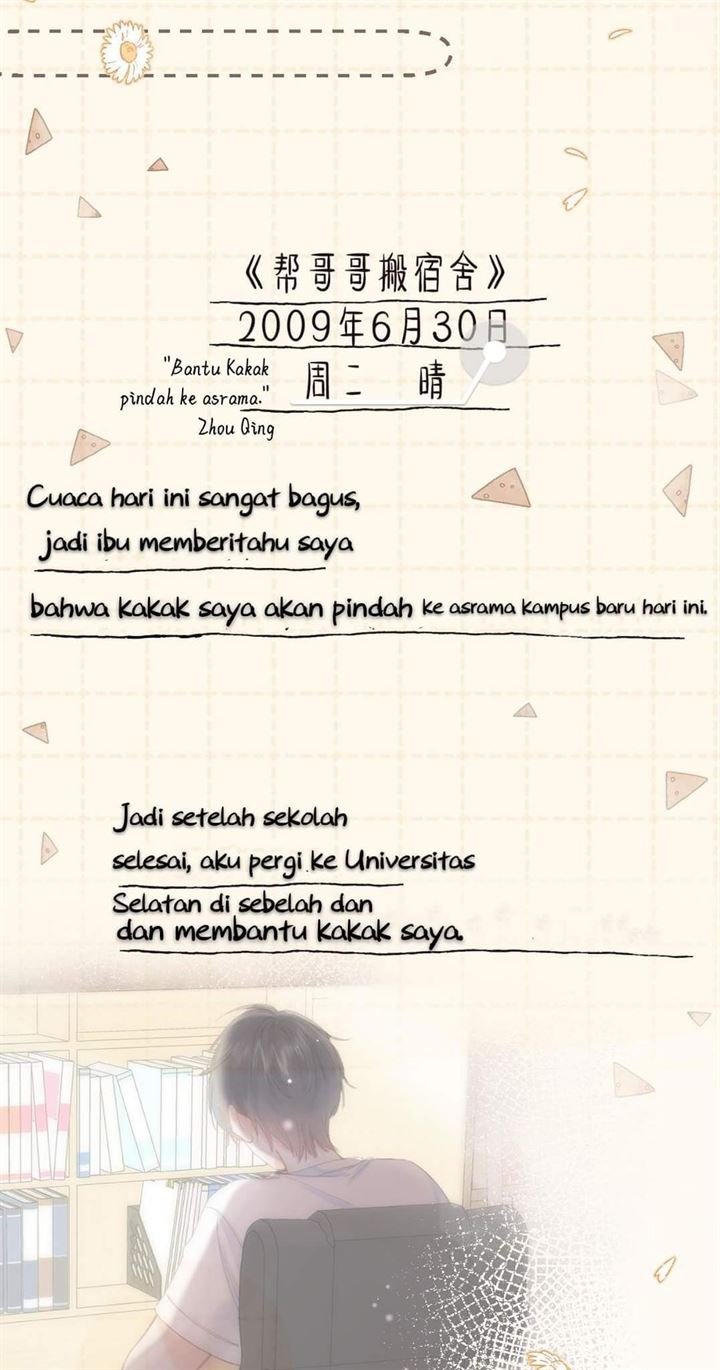 《帮哥哥搬宿舍》
2009年6月30日
周二 晴
"Bantu Kakak
pindah ke asrama."
Zhou Qing
Cuaca hari ini sangat bagus,
jadi ibu memberitahu saya
bahwa kakak saya akan pindah ke asrama kampus baru hari ini.
Jadi setelah sekolah
selesai, aku pergi ke Universitas
Selatan di sebelah dan
dan membantu kakak saya.